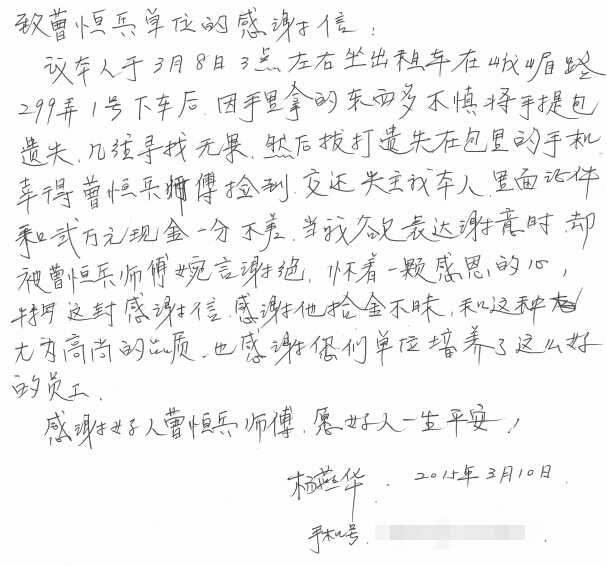 致曹恒兵单位的感谢信:
议本人于3月8日3点左右坐出租车在峨嵋路
299弄1号下车后.因手里拿的东西多不慎将手提包
遗失.几经寻找无果.然后拨打遗失在包里的手机
幸得曹恒兵师傅捡到.交还失主我本人.里面证件
和贰万元现金一分不差.当我欲表达谢意时.却
被曹恒兵师傅婉言谢绝.怀着一颗感恩的心,
特写这封感谢信.感谢他拾金不昧.和这种
尤为高尚的品质.也感谢您们单位培养了这么好
的员工.
感谢好人曹恒兵师傅.愿好人一生平安!
杨燕华. 2015年3月10日.
手机号.